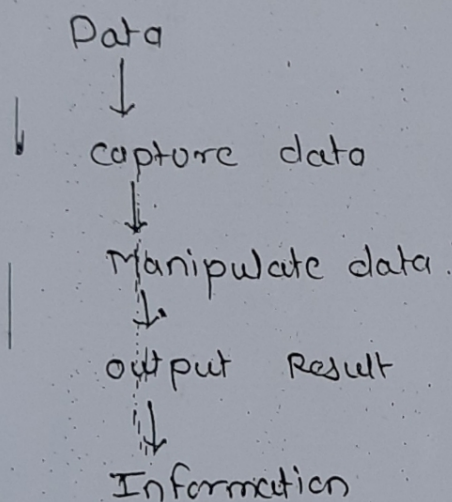 Data
capture data
Manipulate data.
output Result
Information